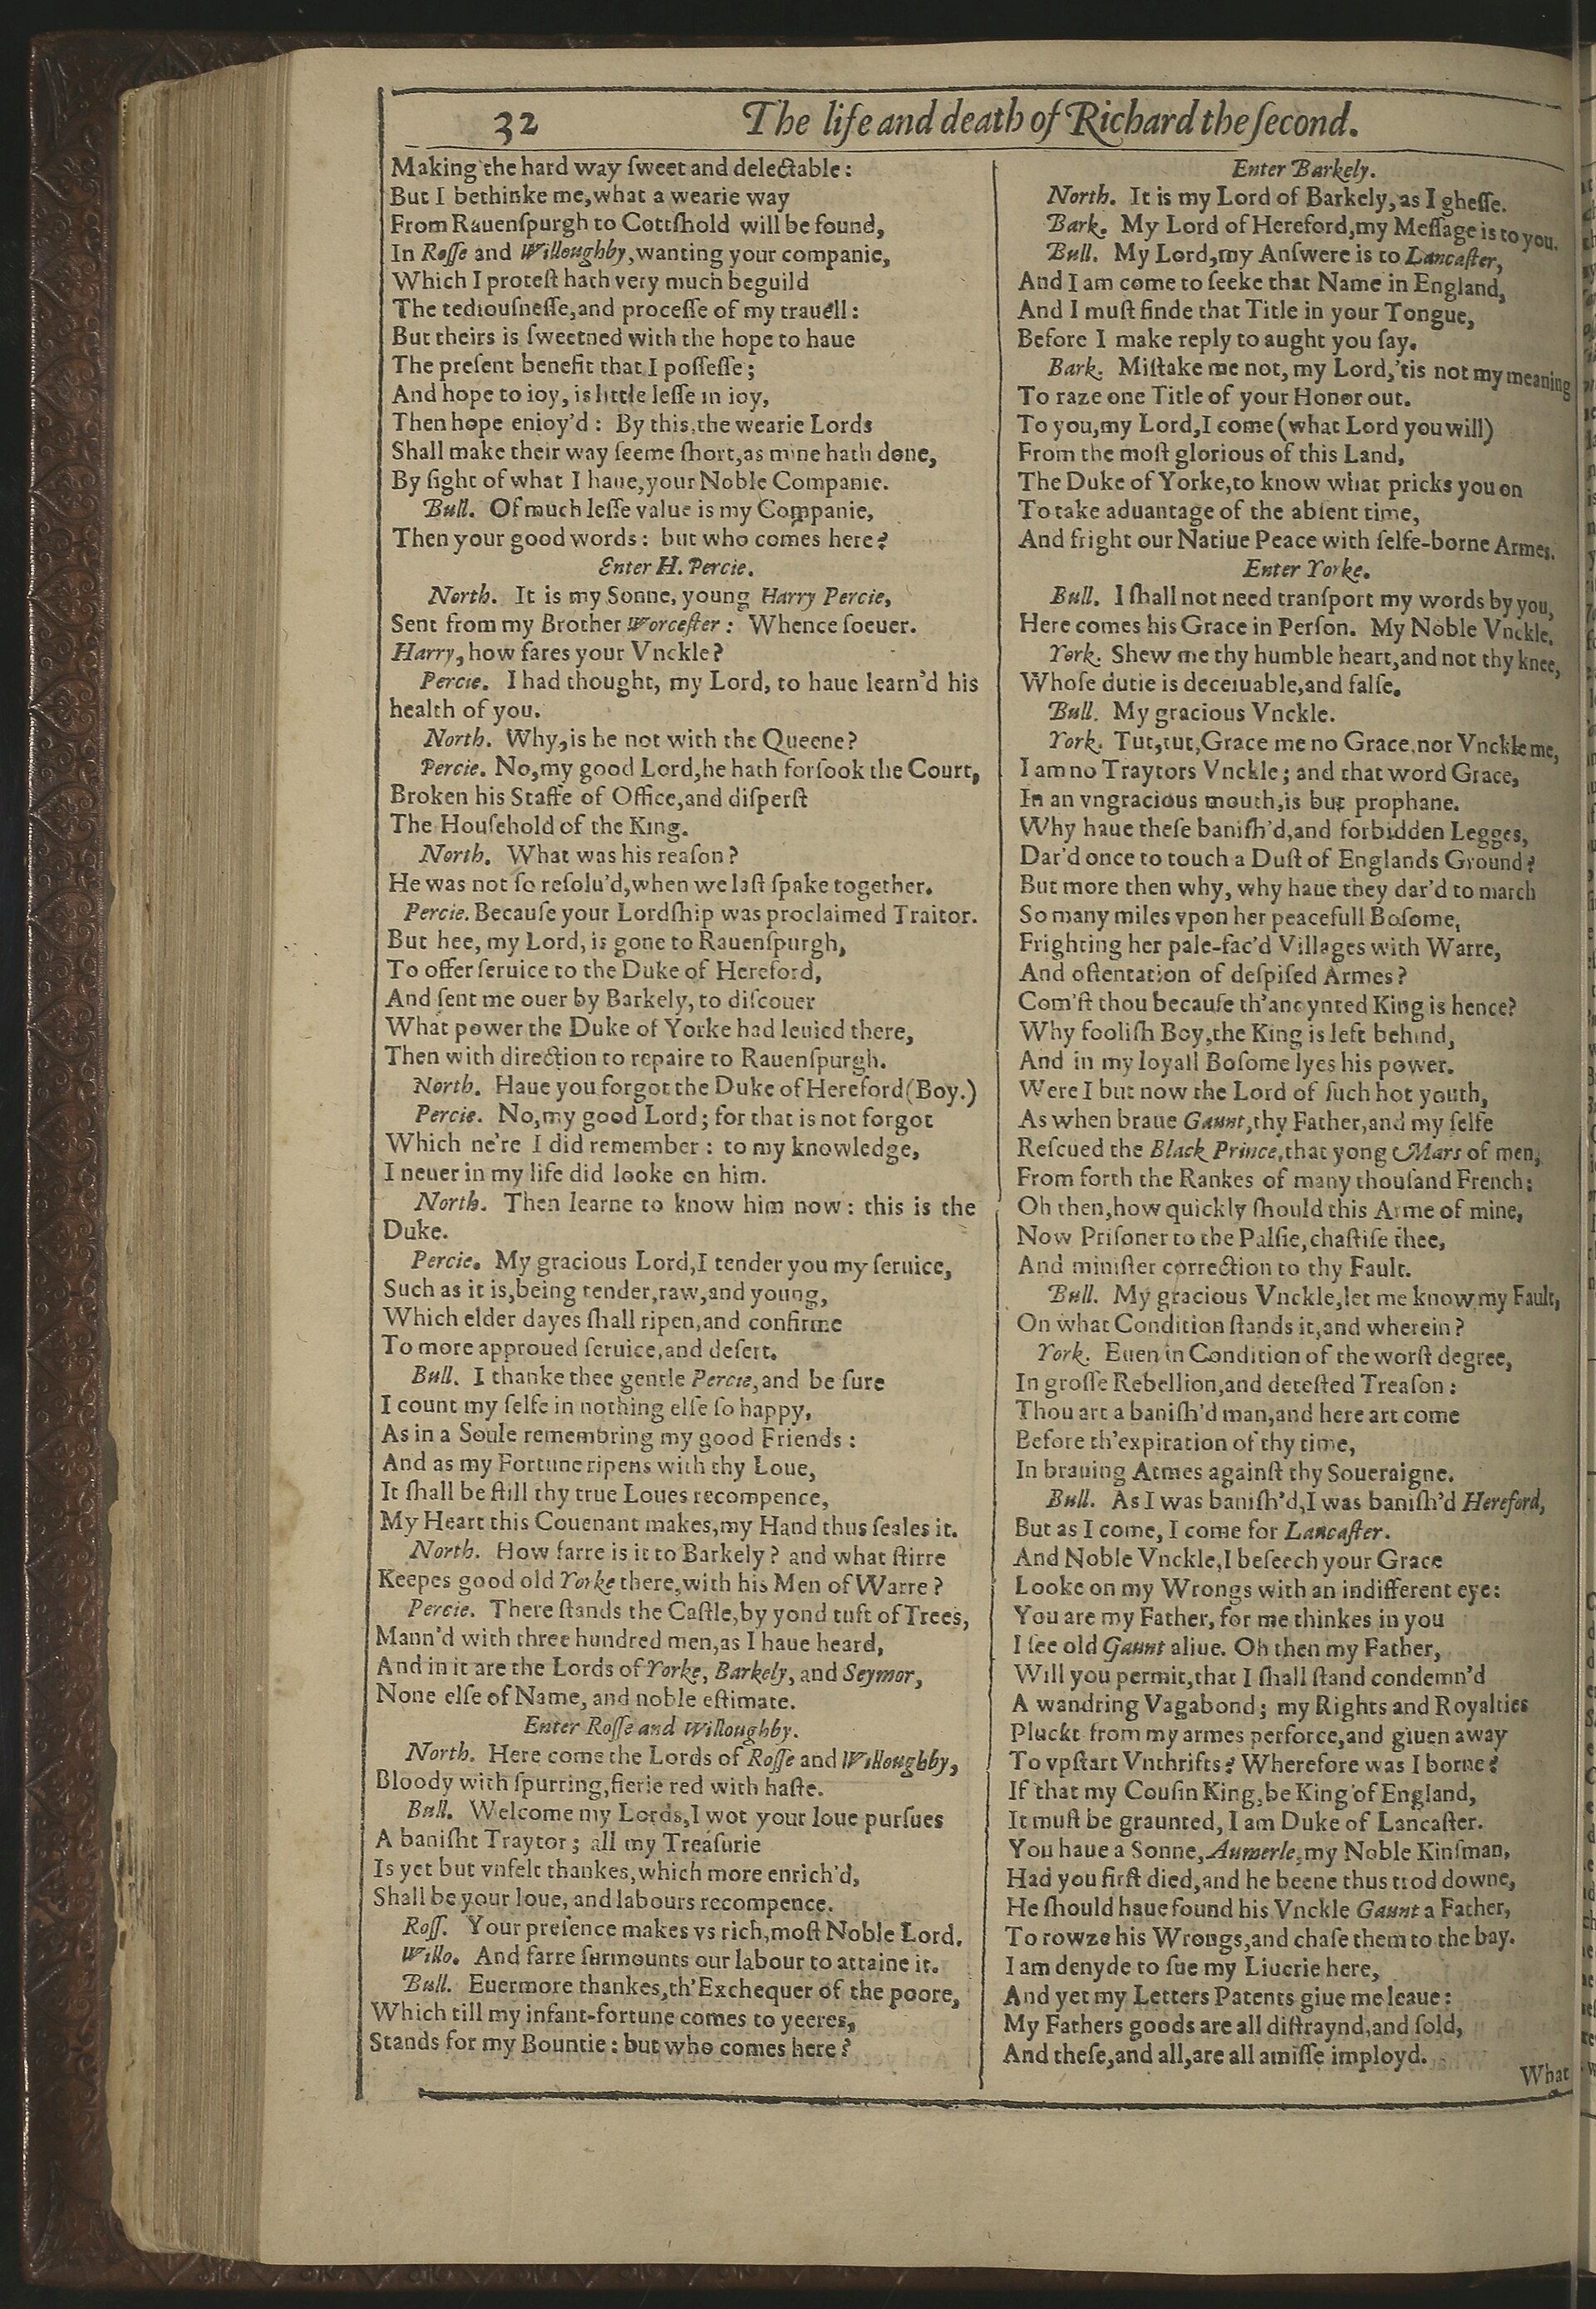 32
The life and death of Richard the ſecond.
Making the hard way ſweet and delectable:
But I bethinke me, what a wearie way
From Rauenſpurgh to Cottſhold will be found,
In Roſſe and Willoughby, wanting your companie,
Which I proteſt hath very much beguild
The tediouſneſſe, and proceſſe of my trauell:
But theirs is ſweetned with the hope to haue
The preſent benefit that I poſſeſſe;
And hope to ioy, is little leſſe in ioy,
Then hope enioy'd: By this, the wearie Lords
Shall make their way ſeeme ſhort, as mine hath done,
By ſight of what I haue, your Noble Companie.
Bull. Of much leſſe value is my Companie,
Then your good words: but who comes here?
Enter H. Percie.
North. It is my Sonne, young Harry Percie,
Sent from my Brother Worceſter: Whence ſoeuer.
Harry, how fares your Vnckle?
Percie. I had thought, my Lord, to haue learn'd his
health of you.
North. Why, is he not with the Queene?
Percie. No, my good Lord, he hath forſook the Court,
Broken his Staffe of Office, and diſperſt
The Houſehold of the King.
North. What was his reaſon?
He was not ſo reſolu'd, when we laſt ſpake together.
Percie. Becauſe your Lordſhip was proclaimed Traitor.
But hee, my Lord, is gone to Rauenſpurgh,
To offer ſeruice to the Duke of Hereford,
And ſent me ouer by Barkely, to diſcouer
What power the Duke of Yorke had leuied there,
Then with direction to repaire to Rauenſpurgh.
North. Haue you forgot the Duke of Hereford (Boy.)
Percie. No, my good Lord; for that is not forgot
Which ne're I did remember: to my knowledge,
I neuer in my life did looke on him.
North. Then learne to know him now: this is the
Duke.
Percie. My gracious Lord, I tender you my ſeruice,
Such as it is, being tender, raw, and young,
Which elder dayes ſhall ripen, and confirme
To more approued ſeruice, and deſert.
Bull. I thanke thee gentle Percie, and be ſure
I count my ſelfe in nothing elſe ſo happy,
As in a Soule remembring my good Friends:
And as my Fortune ripens with thy Loue,
It ſhall be ſtill thy true Loues recompence,
My Heart this Couenant makes, my Hand thus ſeales it.
North. How farre is it to Barkely? and what ſtirre
Keepes good old Yorke there, with his Men of Warre?
Percie. There ſtands the Caſtle, by yond tuft of Trees,
Mann'd with three hundred men, as I haue heard,
And in it are the Lords of Yorke, Barkely, and Seymor,
None elſe of Name, and noble eſtimate.
Enter Roſſe and Willoughby.
North. Here come the Lords of Roſſe and Willoughby,
Bloody with ſpurring, fierie red with haſte.
Bull. Welcome my Lords, I wot your loue purſues
A baniſht Traytor; all my Treaſurie
Is yet but vnfelt thankes, which more enrich'd,
Shall be your loue, and labours recompence.
Roſſ. Your preſence makes vs rich, moſt Noble Lord.
Willo. And farre ſurmounts our labour to attaine it.
Bull. Euermore thankes, th'Exchequer of the poore,
Which till my infant-fortune comes to yeeres,
Stands for my Bountie: but who comes here?
Enter Barkely.
North. It is my Lord of Barkely, as I gheſſe.
Bark. My Lord of Hereford, my Meſſage is to you.
Bull. My Lord, my Anſwere is to Lancaſter,
And I am come to ſeeke that Name in England,
And I muſt finde that Title in your Tongue,
Before I make reply to aught you ſay.
Bark. Miſtake me not, my Lord, 'tis not my meaning
To raze one Title of your Honor out.
To you, my Lord, I come (what Lord you will)
From the moſt glorious of this Land,
The Duke of Yorke, to know what pricks you on
To take aduantage of the abſent time,
And fright our Natiue Peace with ſelfe-borne Armes.
Enter Yorke.
Bull. I ſhall not need tranſport my words by you,
Here comes his Grace in Perſon. My Noble Vnckle.
York. Shew me thy humble heart, and not thy knee,
Whoſe dutie is deceiuable, and falſe.
Bull. My gracious Vnckle.
York. Tut, tut, Grace me no Grace, nor Vnckle me,
I am no Traytors Vnckle; and that word Grace,
In an vngracious mouth, is but prophane.
Why haue theſe baniſh'd, and forbidden Legges,
Dar'd once to touch a Duſt of Englands Ground?
But more then why, why haue they dar'd to march
So many miles vpon her peacefull Boſome,
Frighting her pale-fac'd Villages with Warre,
And oſtentation of deſpiſed Armes?
Com'ſt thou becauſe th'anoynted King is hence?
Why fooliſh Boy, the King is left behind,
And in my loyall Boſome lyes his power.
Were I but now the Lord of ſuch hot youth,
As when braue Gaunt, thy Father, and my ſelfe
Reſcued the Black Prince, that yong Mars of men,
From forth the Rankes of many thouſand French:
Oh then, how quickly ſhould this Arme of mine,
Now Priſoner to the Palſie, chaſtiſe thee,
And miniſter correction to thy Fault.
Bull. My gracious Vnckle, let me know my Fault,
On what Condition ſtands it, and wherein?
York. Euen in Condition of the worſt degree,
In groſſe Rebellion, and deteſted Treaſon:
Thou art a baniſh'd man, and here art come
Before th'expiration of thy time,
In brauing Armes againſt thy Soueraigne.
Bull. As I was baniſh'd, I was baniſh'd Hereford,
But as I come, I come for Lancaſter.
And Noble Vnckle, I beſeech your Grace
Looke on my Wrongs with an indifferent eye:
You are my Father, for me thinkes in you
I ſee old Gaunt aliue. Oh then my Father,
Will you permit, that I ſhall ſtand condemn'd
A wandring Vagabond; my Rights and Royalties
Pluckt from my armes perforce, and giuen away
To vpſtart Vnthrifts? Wherefore was I borne?
If that my Couſin King, be King of England,
It muſt be graunted, I am Duke of Lancaſter.
You haue a Sonne, Aumerle, my Noble Kinſman,
Had you firſt died, and he beene thus trod downe,
He ſhould haue found his Vnckle Gaunt a Father,
To rowze his Wrongs, and chaſe them to the bay.
I am denyde to ſue my Liuerie here,
And yet my Letters Patents giue me leaue:
My Fathers goods are all diſtraynd, and ſold,
And theſe, and all, are all amiſſe imployd.
What